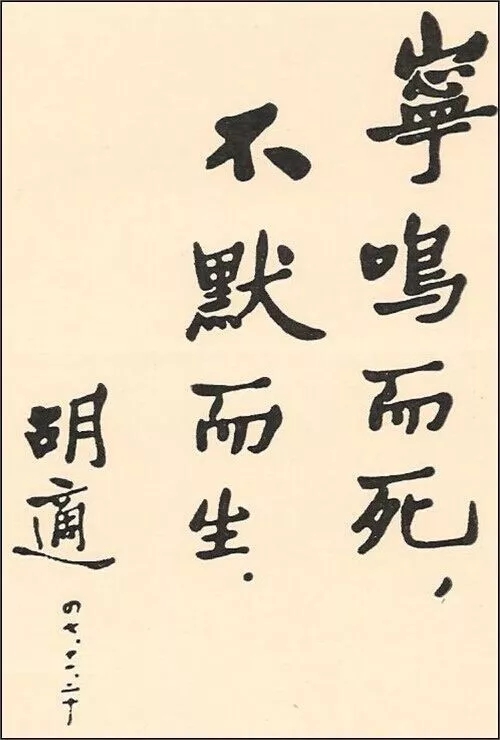 寧鳴而死，
不默而生．
胡適
四七．